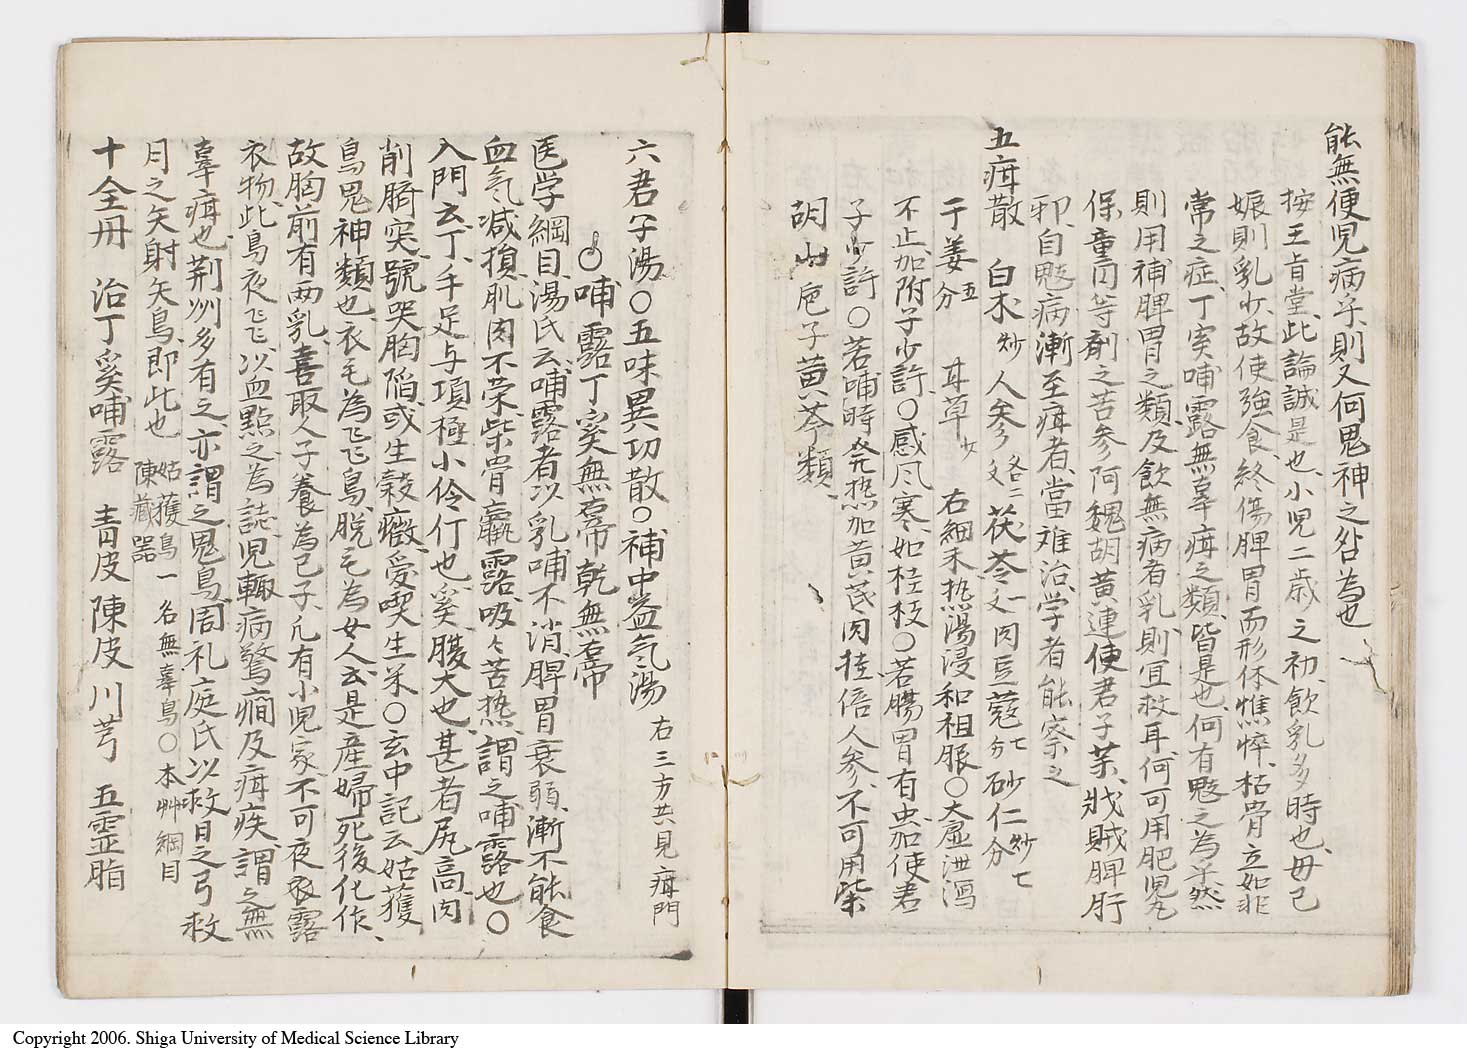 能無便児病乎、則又何鬼神之咎為也
按王肯堂此論誠是也、小児二歳之初、飲乳多時也、毋已
娠則乳少、故使強食、終傷脾胃而形体憔悴、枯骨立如非
常之症、丁奚哺露無辜疳之類、皆是也、何有鬾之為乎、然
則用補脾胃之類、及飲無病者乳、則宜救耳、何可用肥児丸
保童円等剤之苦参阿魏胡黄連使君子葉、戕賊脾肝
耶、自鬾病漸至疳者、當难治、学者能察之
五疳散 白朮炒 人参各二匁 茯苓一匁 肉豆蔻七分 砂仁炒七分
干姜五分 甘草少 右細末热湯浸和粗服〇大虚泄瀉
不止、加附子少許〇感风寒、如桂枝〇若腸胃有虫、加使君
子少許〇若哺時発热、加黄芪肉桂倍人参、不可用柴
胡山梔子黄芩類、
六君子湯〇五味異功散〇補中益气湯 右三方共見疳門
〇哺露丁奚無辜乾無辜
医学綱目、湯氏云、哺露者以乳哺不消、脾胃衰弱、漸不能食
血气减損、肌肉不荣、柴骨羸露、吸々苦热、謂之哺露也〇
入門云、丁、手足与項極小伶仃也、奚、腹大也、甚者尻高、肉
削臍突、號哭胸陷、或生穀癥、愛喫生米〇玄中記云、姑獲
鳥鬼神類也、衣毛為飞鳥、脱毛為女人、云是産婦死後化作、
故胸前有両乳、喜取人子養為己子、凡有小児家、不可夜衣露
衣物、此鳥夜飞、以血點之為誌、児輙病驚癇及疳疾、謂之無
辜疳也、荆州多有之、亦謂之鬼鳥、周礼庭氏以救日之弓救
月之矢射矢鳥、即此也 姑獲鳥一名無辜鳥〇本艸綱目陳蔵器
十全丹 治丁奚哺露 青皮 陳皮 川芎 五靈脂
Copyright 2006. Shiga University of Medical Science Library